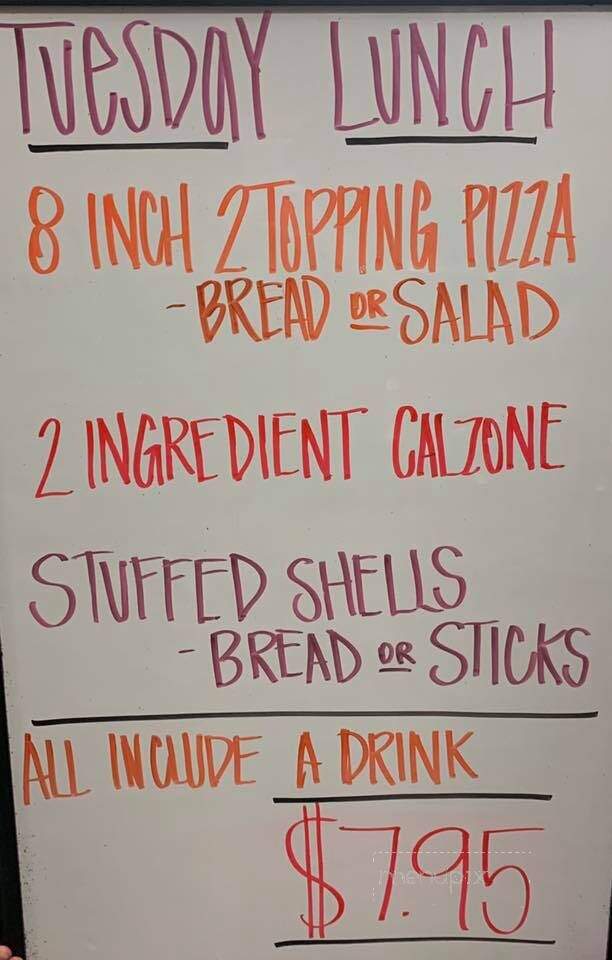 TUESDAY LUNCH
8 INCH 2 TOPPING PIZZA
- BREAD OR SALAD
2 INGREDIENT CALZONE
STUFFED SHELLS
- BREAD OR STICKS
ALL INCLUDE A DRINK
$7.95
menupix